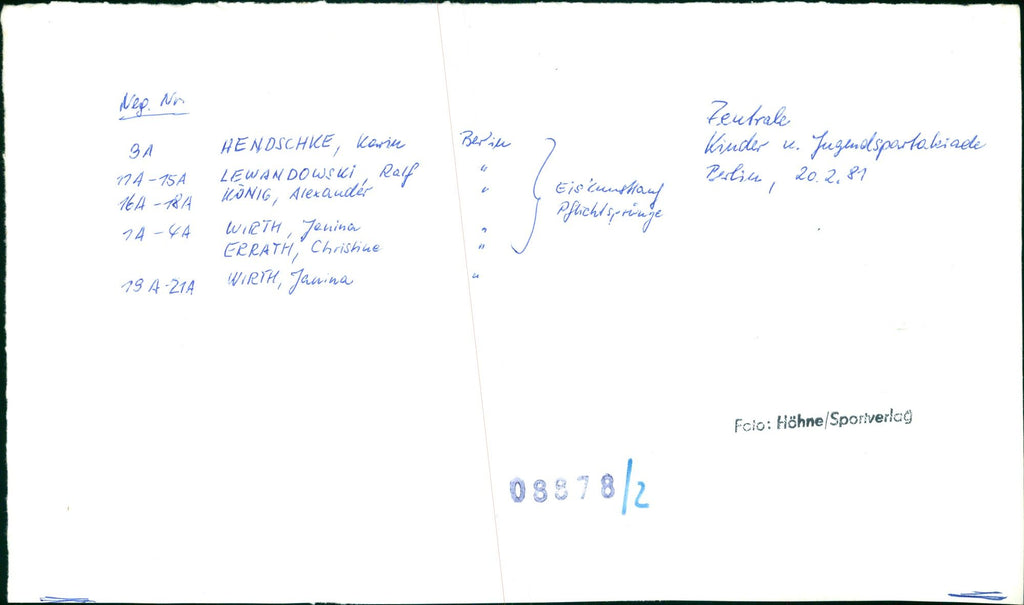 Neg. Nr.
9A HENDSCHKE, Karin Berlin
11A-15A LEWANDOWSKI, Ralf "
16A-18A KÖNIG, Alexander "
1A-4A WIRTH, Janina "
ERRATH, Christine "
19A-21A WIRTH, Janina "
Eis'kunstlauf
Pflichtsprünge
Zentrale
Kinder u. Jugendspartakiade
Berlin, 20.2.81
Foto: Höhne/Sportverlag
08878/2